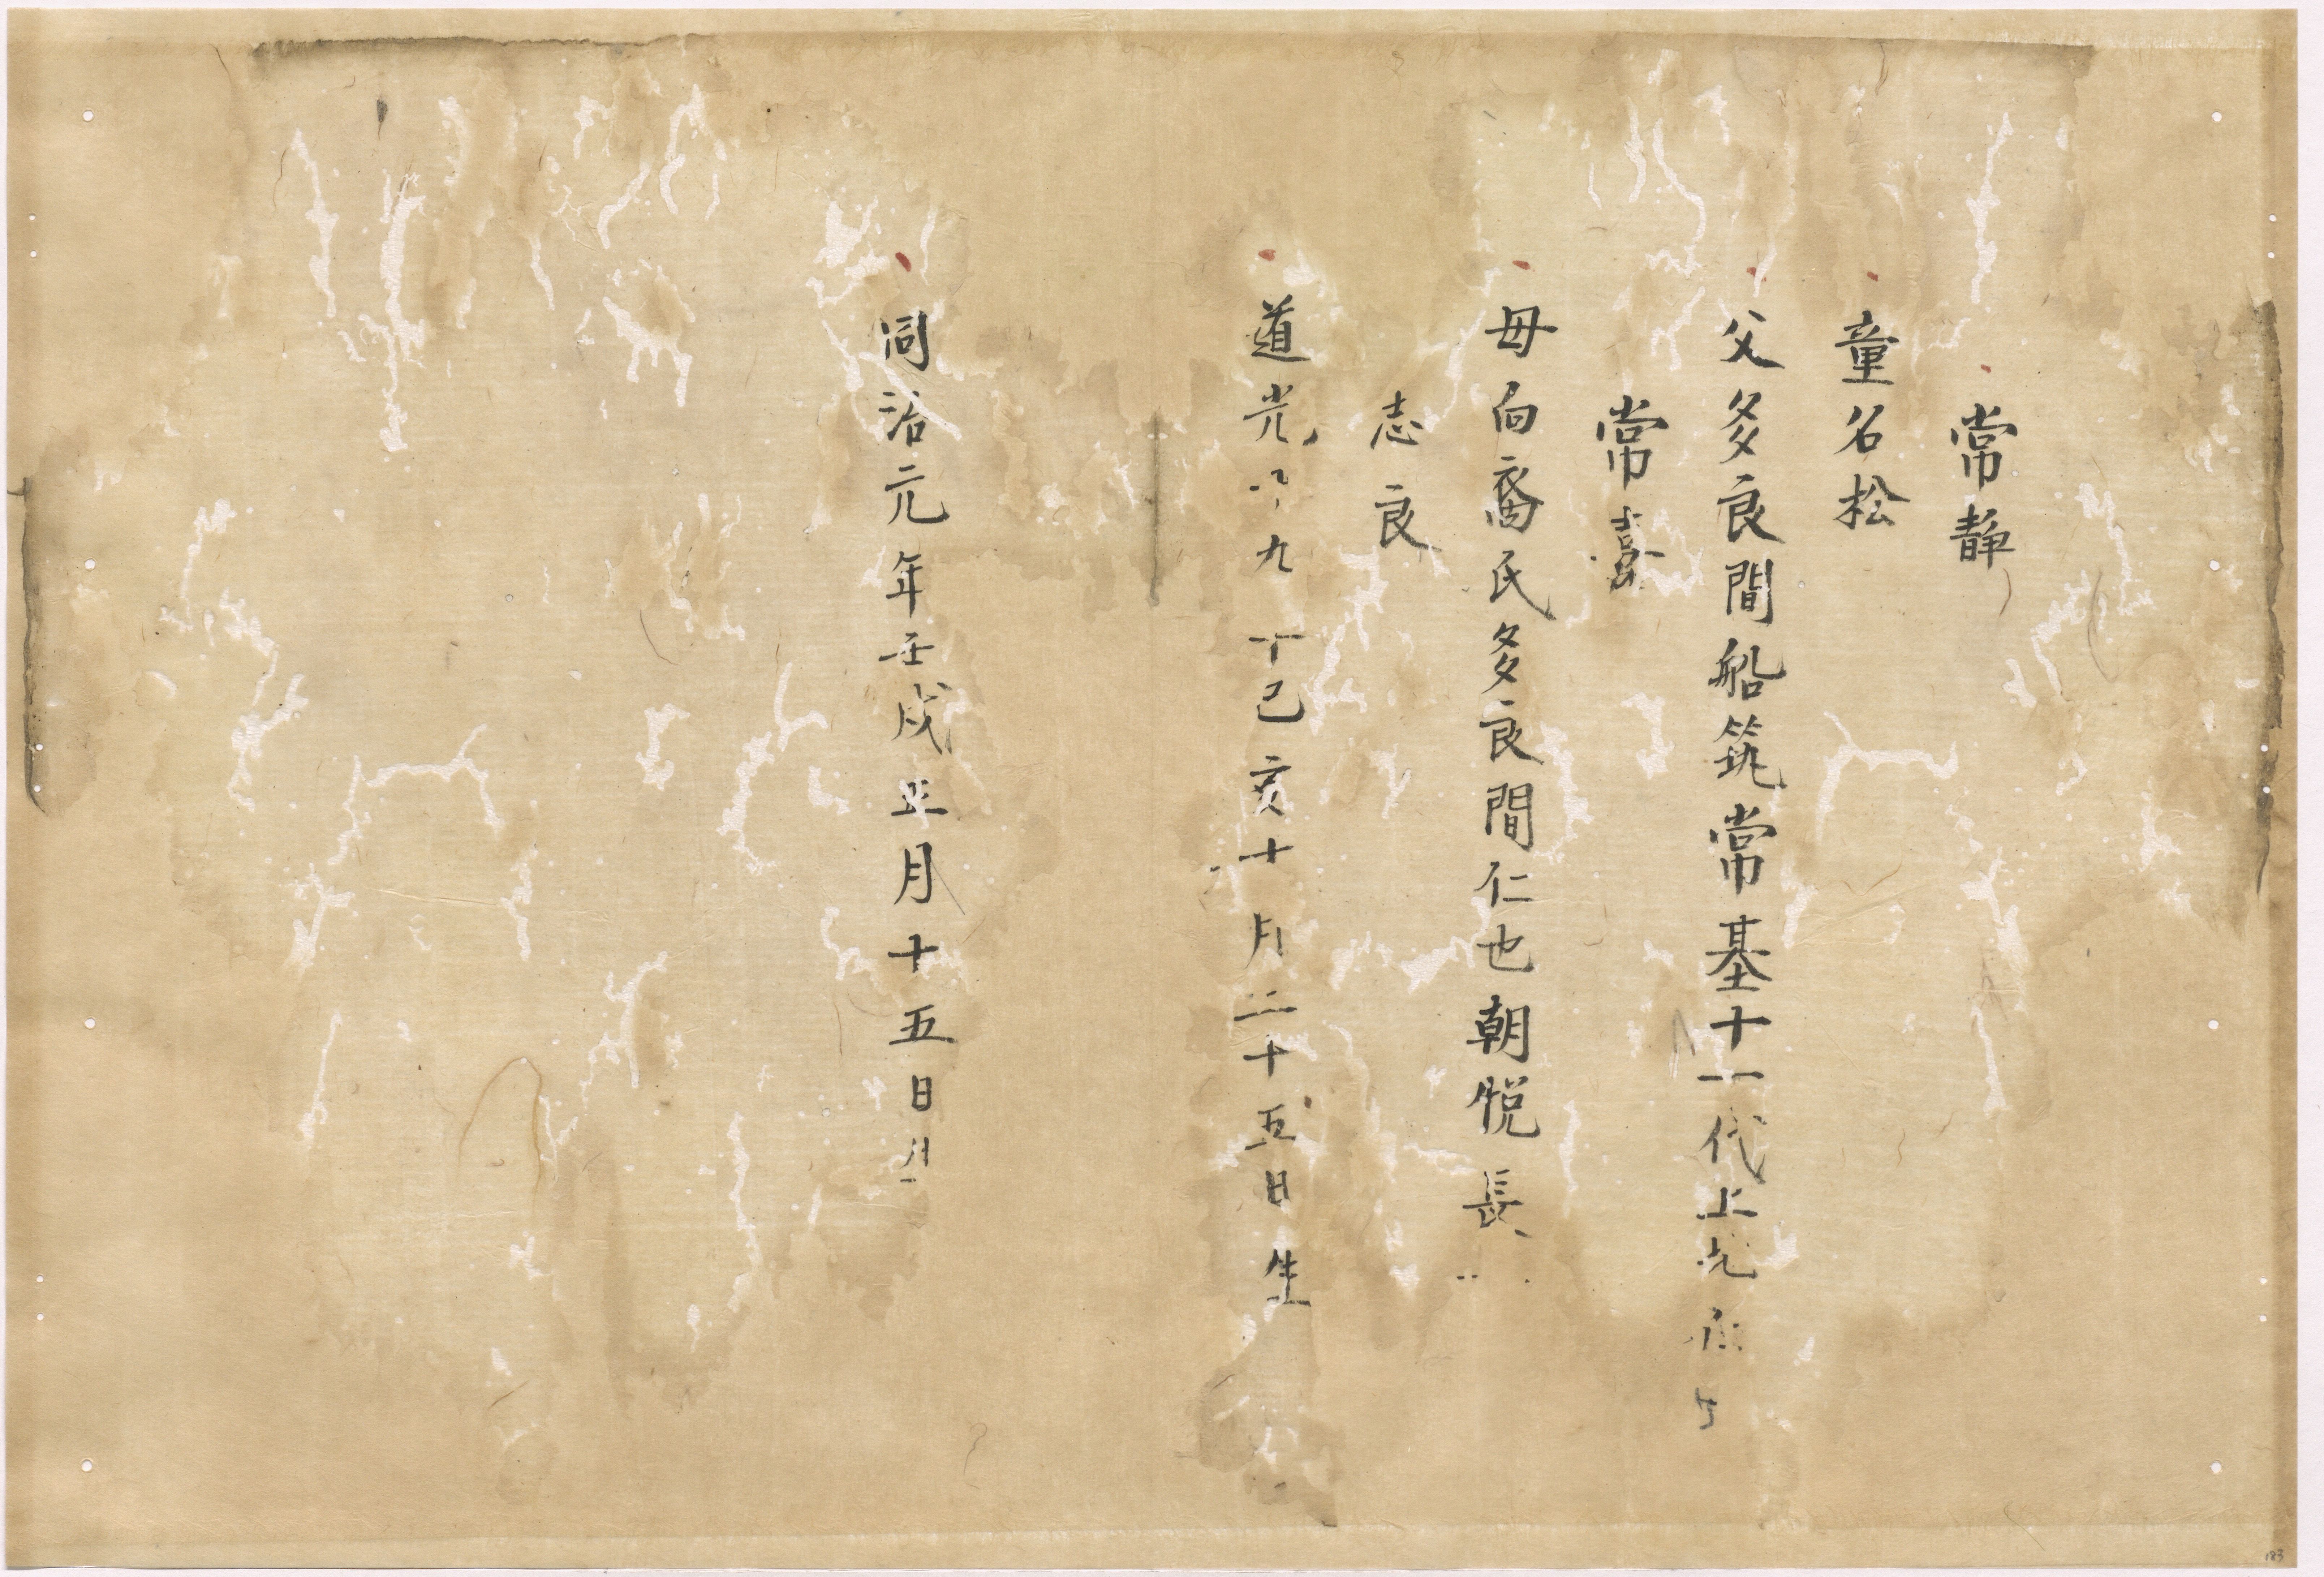 常静
童名松
父多良間船筑常基十一代上
常喜
母向裔氏多良間仁也朝悦長
志良
道光 九 己亥十月二十五日生
同治元年壬戌正月十五日
183